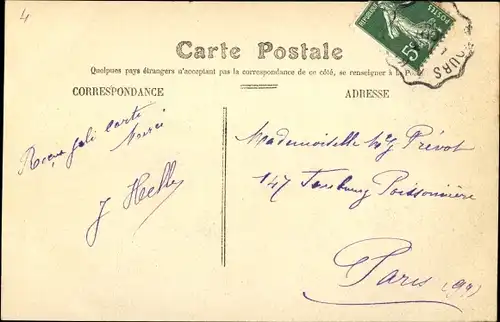 4
Carte Postale
Quelques pays étrangers n'acceptant pas la correspondance de ce côté, se renseigner à la Poste
CORRESPONDANCE
ADRESSE
Reçu joli carte
Merci
J Helly
Mademoiselle Prévot
147 Faubourg Poissonnière
Paris (9e)
POSTES
5
OURS